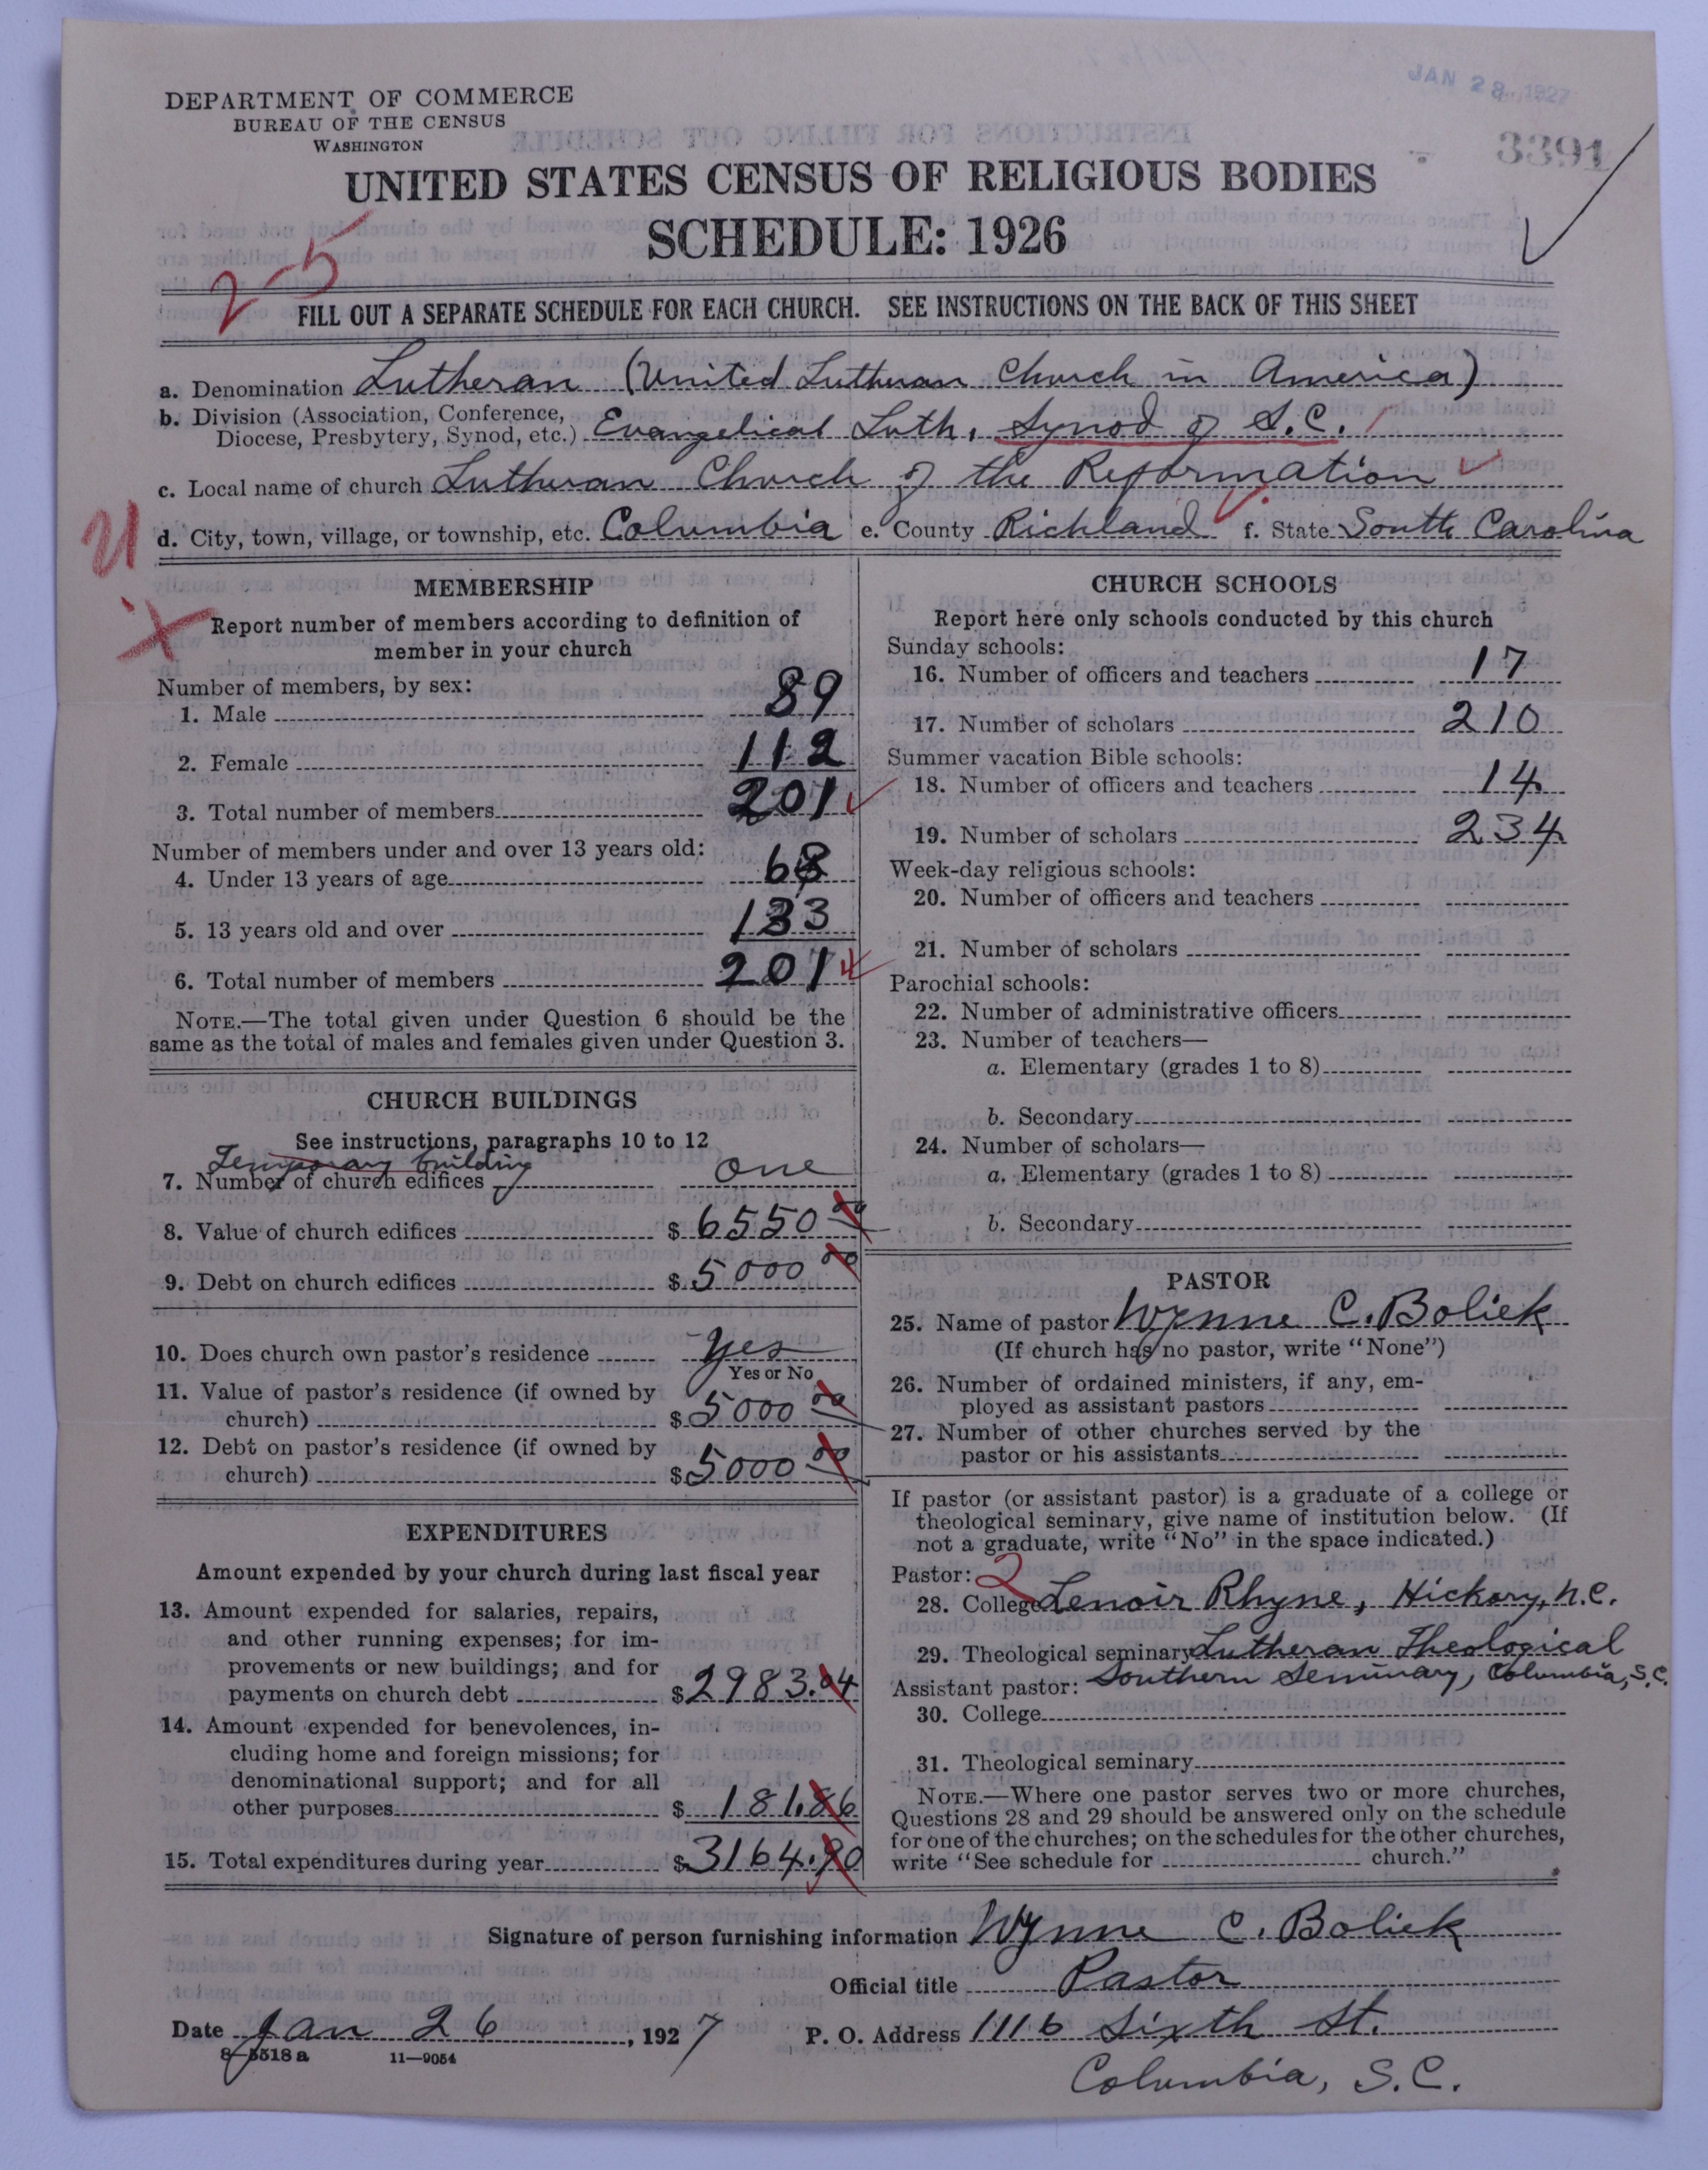 JAN 28 1927
3391
DEPARTMENT OF COMMERCE
BUREAU OF THE CENSUS
WASHINGTON
UNITED STATES CENSUS OF RELIGIOUS BODIES
SCHEDULE: 1926
2-5
FILL OUT A SEPARATE SCHEDULE FOR EACH CHURCH. SEE INSTRUCTIONS ON THE BACK OF THIS SHEET
a. Denomination Lutheran (United Lutheran Church in America)
b. Division (Association, Conference,
Diocese, Presbytery, Synod, etc.) Evangelical Luth. Synod of S.C.
c. Local name of church Lutheran Church of the Reformation
d. City, town, village, or township, etc. Columbia e. County Richland f. State South Carolina
MEMBERSHIP
Report number of members according to definition of
member in your church
Number of members, by sex:
1. Male 89
2. Female 112
3. Total number of members 201
Number of members under and over 13 years old:
4. Under 13 years of age 68
5. 13 years old and over 133
6. Total number of members 201
NOTE.—The total given under Question 6 should be the
same as the total of males and females given under Question 3.
CHURCH BUILDINGS
See instructions, paragraphs 10 to 12
Temporary building
7. Number of church edifices one
8. Value of church edifices $ 6550 00
9. Debt on church edifices $ 5000 00
10. Does church own pastor's residence Yes
Yes or No
11. Value of pastor's residence (if owned by
church) $ 5000 00
12. Debt on pastor's residence (if owned by
church) $ 5000 00
EXPENDITURES
Amount expended by your church during last fiscal year
13. Amount expended for salaries, repairs,
and other running expenses; for im-
provements or new buildings; and for
payments on church debt $ 2983.04
14. Amount expended for benevolences, in-
cluding home and foreign missions; for
denominational support; and for all
other purposes $ 181.86
15. Total expenditures during year $ 3164.90
CHURCH SCHOOLS
Report here only schools conducted by this church
Sunday schools:
16. Number of officers and teachers 17
17. Number of scholars 210
Summer vacation Bible schools:
18. Number of officers and teachers 14
19. Number of scholars 234
Week-day religious schools:
20. Number of officers and teachers
21. Number of scholars
Parochial schools:
22. Number of administrative officers
23. Number of teachers—
a. Elementary (grades 1 to 8)
b. Secondary
24. Number of scholars—
a. Elementary (grades 1 to 8)
b. Secondary
PASTOR
25. Name of pastor Wynne C. Boliek
(If church has no pastor, write "None")
26. Number of ordained ministers, if any, em-
ployed as assistant pastors
27. Number of other churches served by the
pastor or his assistants
If pastor (or assistant pastor) is a graduate of a college or
theological seminary, give name of institution below. (If
not a graduate, write "No" in the space indicated.)
Pastor: 2
28. College Lenoir Rhyne, Hickory, N.C.
29. Theological seminary Lutheran Theological
Southern Seminary, Columbia, S.C.
Assistant pastor:
30. College
31. Theological seminary
NOTE.—Where one pastor serves two or more churches,
Questions 28 and 29 should be answered only on the schedule
for one of the churches; on the schedules for the other churches,
write "See schedule for church."
Signature of person furnishing information Wynne C. Boliek
Official title Pastor
Date Jan 26, 1927 P. O. Address 1116 Sixth St.
Columbia, S.C.
8—5518 a 11—9054